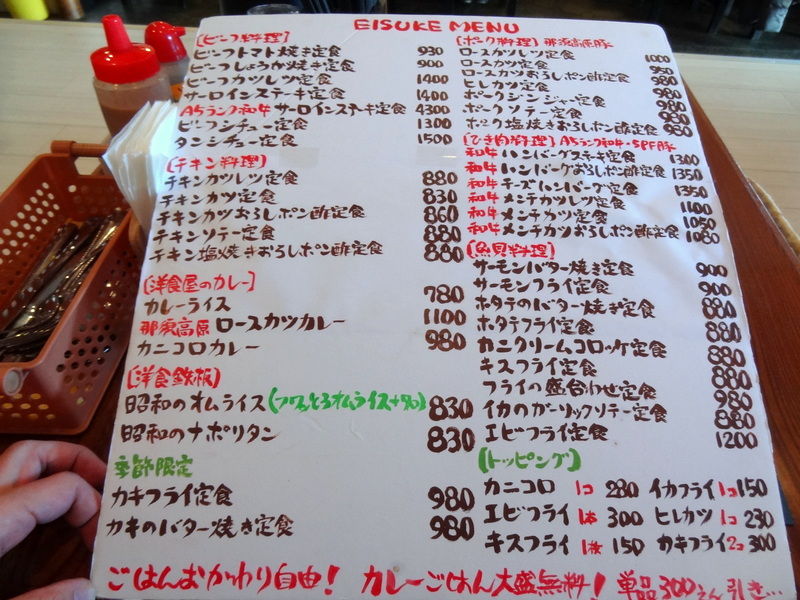 EISUKE MENU
[ビーフ料理]
ビーフトマト焼き定食 930
ビーフしょうが焼き定食 900
ビーフカツレツ定食 1400
サーロインステーキ定食 1400
A5ランク和牛 サーロインステーキ定食 4300
ビーフシチュー定食 1300
タンシチュー定食 1500
[チキン料理]
チキンカツレツ定食 880
チキンカツ定食 830
チキンカツおろしポン酢定食 860
チキンソテー定食 880
チキン塩焼きおろしポン酢定食 880
[洋食屋のカレー]
カレーライス 780
那須高原 ロースカツカレー 1100
カニコロカレー 980
[洋食鉄板]
昭和のオムライス(フワッとろオムライス+90) 830
昭和のナポリタン 830
季節限定
カキフライ定食 980
カキのバター焼き定食 980
[ポーク料理] 那須高原豚
ロースカツレツ定食 1000
ロースカツ定食 950
ロースカツおろしポン酢定食 980
ヒレカツ定食 980
ポークジンジャー定食 980
ポークソテー定食 980
ポーク塩焼きおろしポン酢定食 980
[ひき肉料理] A5ランク和牛・SPF豚
和牛 ハンバーグステーキ定食 1300
和牛 ハンバーグおろしポン酢定食 1350
和牛 チーズハンバーグ定食 1350
和牛 メンチカツレツ定食 1100
和牛 メンチカツ定食 1050
和牛 メンチカツおろしポン酢定食 1080
[魚貝料理]
サーモンバター焼き定食 900
サーモンフライ定食 900
ホタテのバター焼き定食 880
ホタテフライ定食 880
カニクリームコロッケ定食 880
キスフライ定食 880
フライの盛合わせ定食 980
イカのガーリックソテー定食 880
エビフライ定食 1200
[トッピング]
カニコロ 1コ 280 イカフライ 1コ 150
エビフライ 1本 300 ヒレカツ 1コ 230
キスフライ 1枚 150 カキフライ 2コ 300
ごはんおかわり自由! カレーごはん大盛無料! 単品300えん引き…